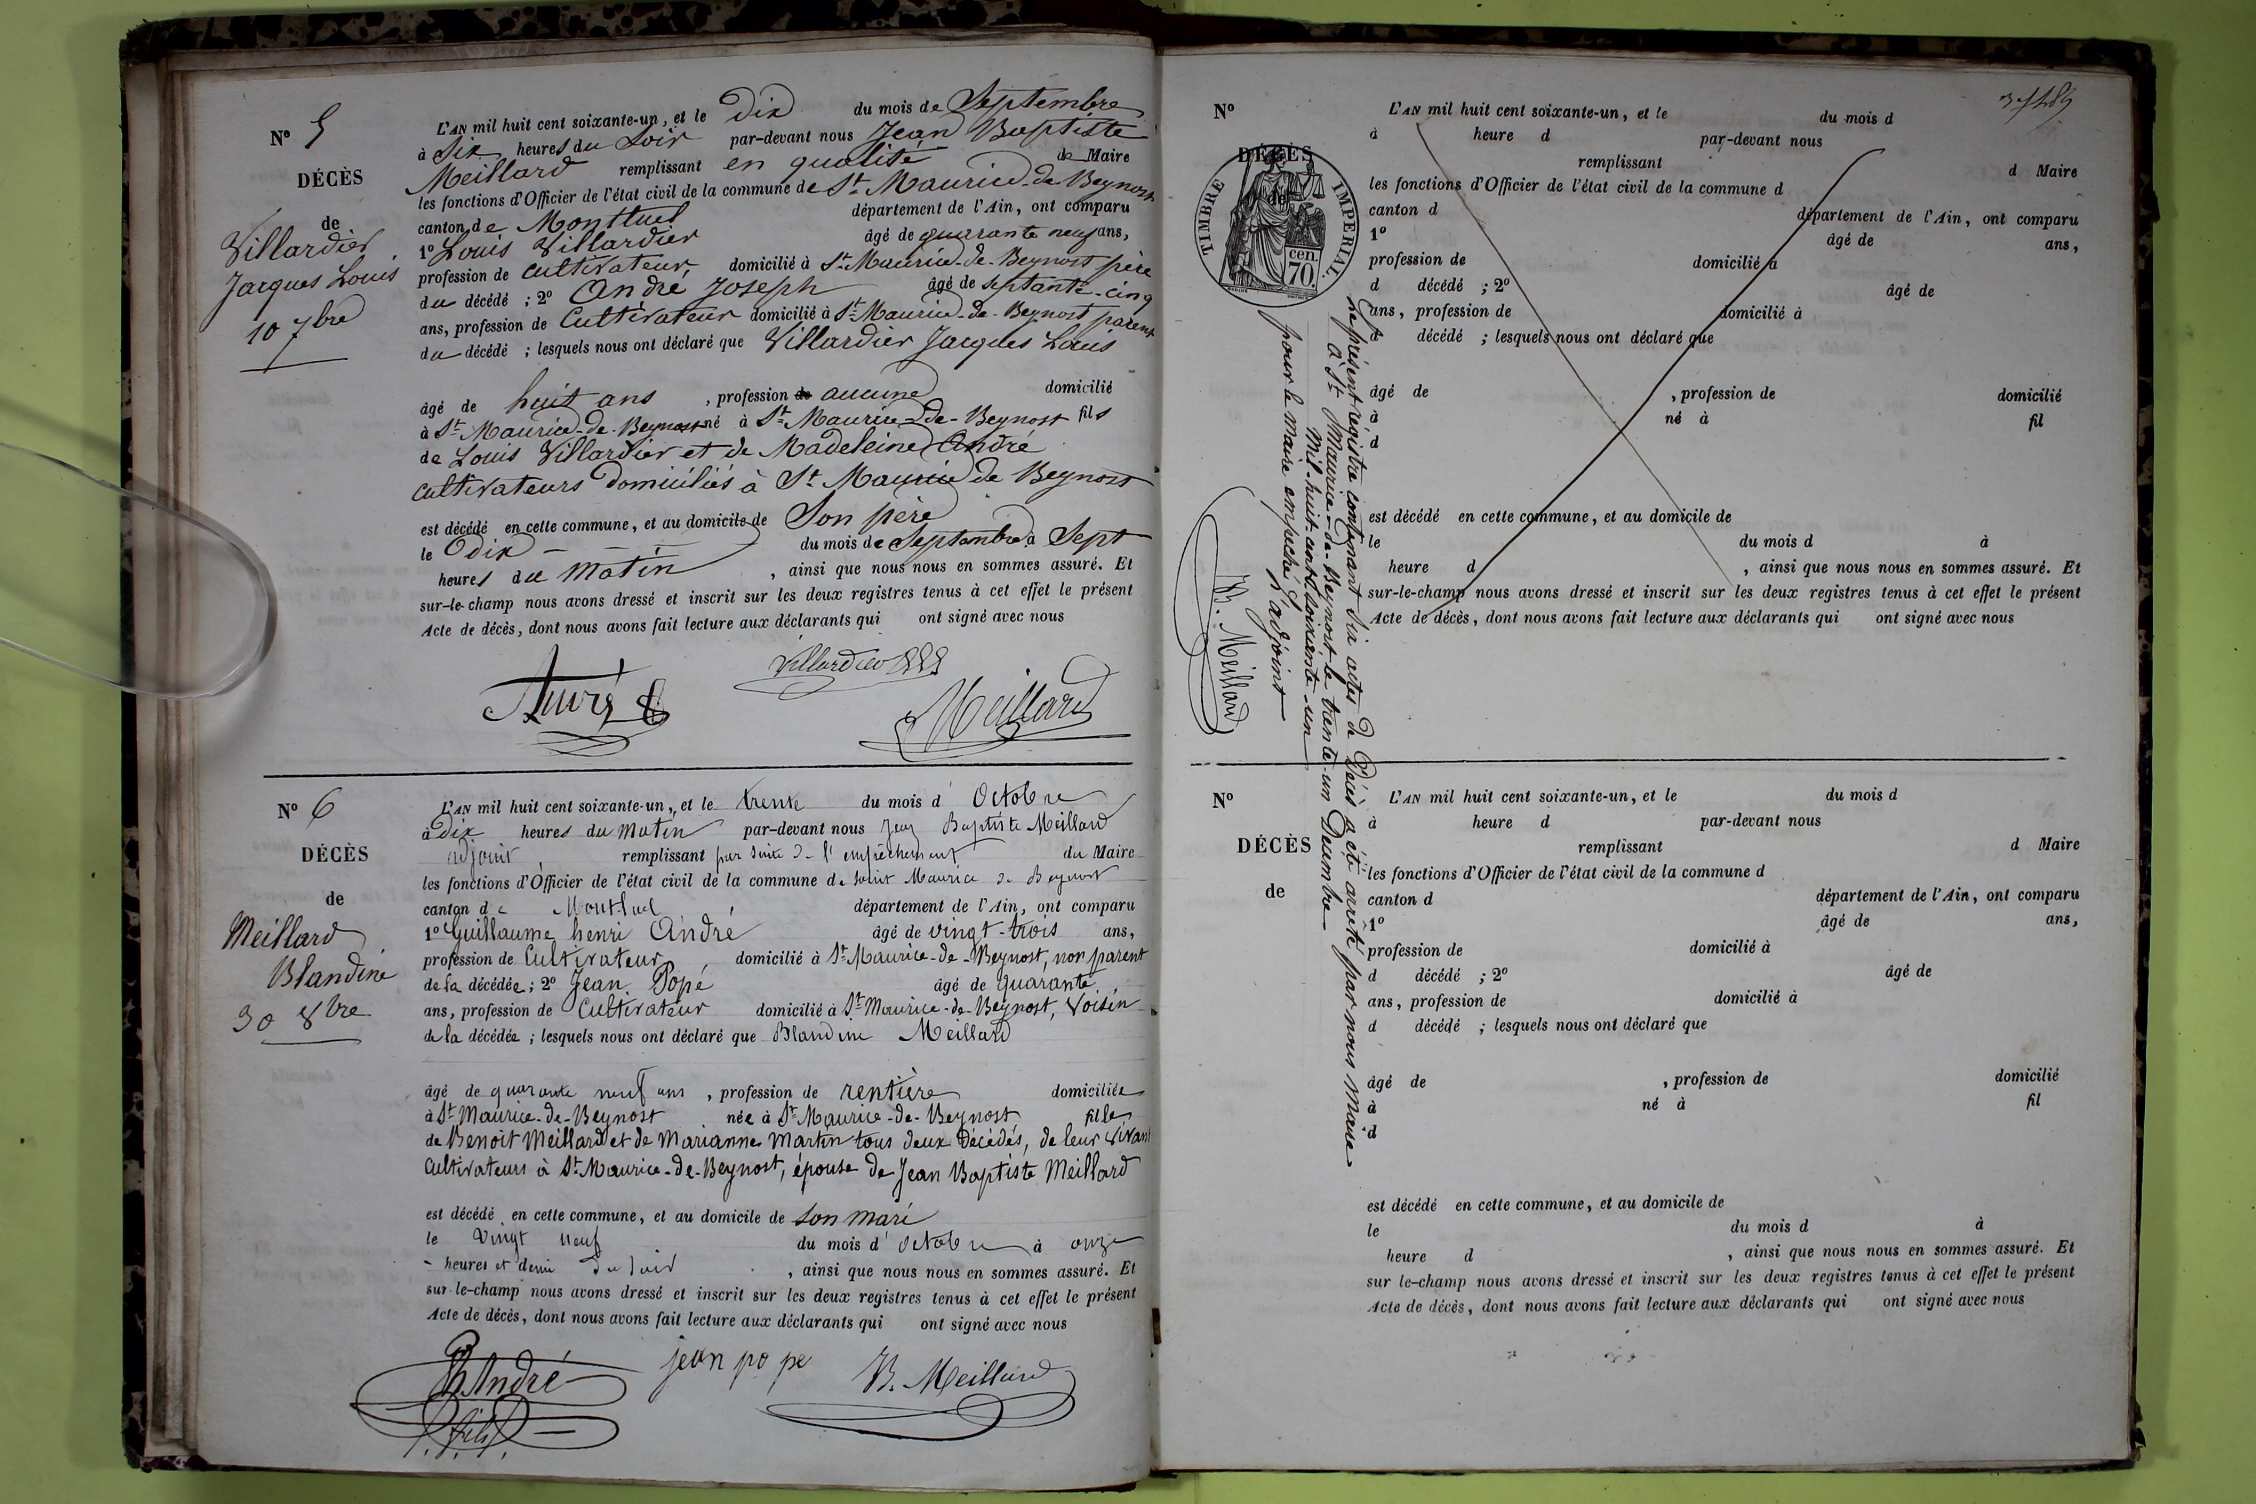 N° 5
DÉCÈS
de
Villardier
Jacques Louis
10 7bre
L'AN mil huit cent soixante-un, et le dix du mois de Septembre
à Six heures du Soir par-devant nous Jean Baptiste
Meillard remplissant en qualité de Maire
les fonctions d'Officier de l'état civil de la commune de St Maurice de Beynost
canton de Montluel département de l'Ain, ont comparu
1° Louis Villardier âgé de quarante neuf ans,
profession de cultivateur, domicilié à St Maurice-de-Beynost père
du décédé ; 2° André Joseph âgé de septante-cinq
ans, profession de Cultivateur domicilié à St Maurice-de-Beynost parent
du décédé ; lesquels nous ont déclaré que Villardier Jacques Louis
âgé de huit ans, profession de aucune domicilié
à St Maurice-de-Beynost né à St Maurice-de-Beynost fils
de Louis Villardier et de Madeleine André
cultivateurs domiciliés à St Maurice de Beynost
est décédé en cette commune, et au domicile de Son père
le dix du mois de Septembre à Sept
heures du matin, ainsi que nous nous en sommes assuré. Et
sur-le-champ nous avons dressé et inscrit sur les deux registres tenus à cet effet le présent
Acte de décès, dont nous avons fait lecture aux déclarants qui ont signé avec nous
André Villardier Meillard
N° 6
DÉCÈS
de
Meillard
Blandine
30 8bre
L'AN mil huit cent soixante-un, et le trente du mois d' Octobre
à Dix heures du Matin par-devant nous Jean Baptiste Meillard
adjoint remplissant par suite de l'empêchement du Maire
les fonctions d'Officier de l'état civil de la commune de Saint Maurice de Beynost
canton de Montluel département de l'Ain, ont comparu
1° Guillaume henri André âgé de vingt-trois ans,
profession de Cultivateur, domicilié à St Maurice-de-Beynost, non parent
de la décédée ; 2° Jean Popé âgé de quarante
ans, profession de Cultivateur domicilié à St Maurice-de-Beynost, Voisin
de la décédée ; lesquels nous ont déclaré que Blandine Meillard
âgé de quarante neuf ans, profession de rentière domiciliée
à St Maurice-de-Beynost née à St Maurice-de-Beynost fille
de Benoit Meillard et de Marianne Martin tous deux Décédés, de leur vivant
Cultivateurs à St Maurice-de-Beynost, épouse de Jean Baptiste Meillard
est décédé en cette commune, et au domicile de son mari
le vingt neuf du mois d' octobre à onze
heures et demi du soir, ainsi que nous nous en sommes assuré. Et
sur-le-champ nous avons dressé et inscrit sur les deux registres tenus à cet effet le présent
Acte de décès, dont nous avons fait lecture aux déclarants qui ont signé avec nous
André fils jean pope B. Meillard
N°
DÉCÈS
de
TIMBRE IMPERIAL.
70 cen.
L'AN mil huit cent soixante-un, et le du mois d
à heure d par-devant nous
remplissant d Maire
les fonctions d'Officier de l'état civil de la commune d
canton d département de l'Ain, ont comparu
1° âgé de ans,
profession de domicilié à
d décédé ; 2° âgé de
ans, profession de domicilié à
d décédé ; lesquels nous ont déclaré que
âgé de , profession de domicilié
à né à fil
d
est décédé en cette commune, et au domicile de
le du mois d à
heure d , ainsi que nous nous en sommes assuré. Et
sur-le-champ nous avons dressé et inscrit sur les deux registres tenus à cet effet le présent
Acte de décès, dont nous avons fait lecture aux déclarants qui ont signé avec nous
Le présent régistre contenant Six actes de Décès a été arrêté par nous Maire
à St Maurice-de-Beynost le trente-un Décembre
mil-huit-cent-Soixante-un
pour le Maire empeché
L'adjoint
B. Meillard
N°
DÉCÈS
de
L'AN mil huit cent soixante-un, et le du mois d
à heure d par-devant nous
remplissant d Maire
les fonctions d'Officier de l'état civil de la commune d
canton d département de l'Ain, ont comparu
1° âgé de ans,
profession de domicilié à
d décédé ; 2° âgé de
ans, profession de domicilié à
d décédé ; lesquels nous ont déclaré que
âgé de , profession de domicilié
à né à fil
d
est décédé en cette commune, et au domicile de
le du mois d à
heure d , ainsi que nous nous en sommes assuré. Et
sur le-champ nous avons dressé et inscrit sur les deux registres tenus à cet effet le présent
Acte de décès, dont nous avons fait lecture aux déclarants qui ont signé avec nous